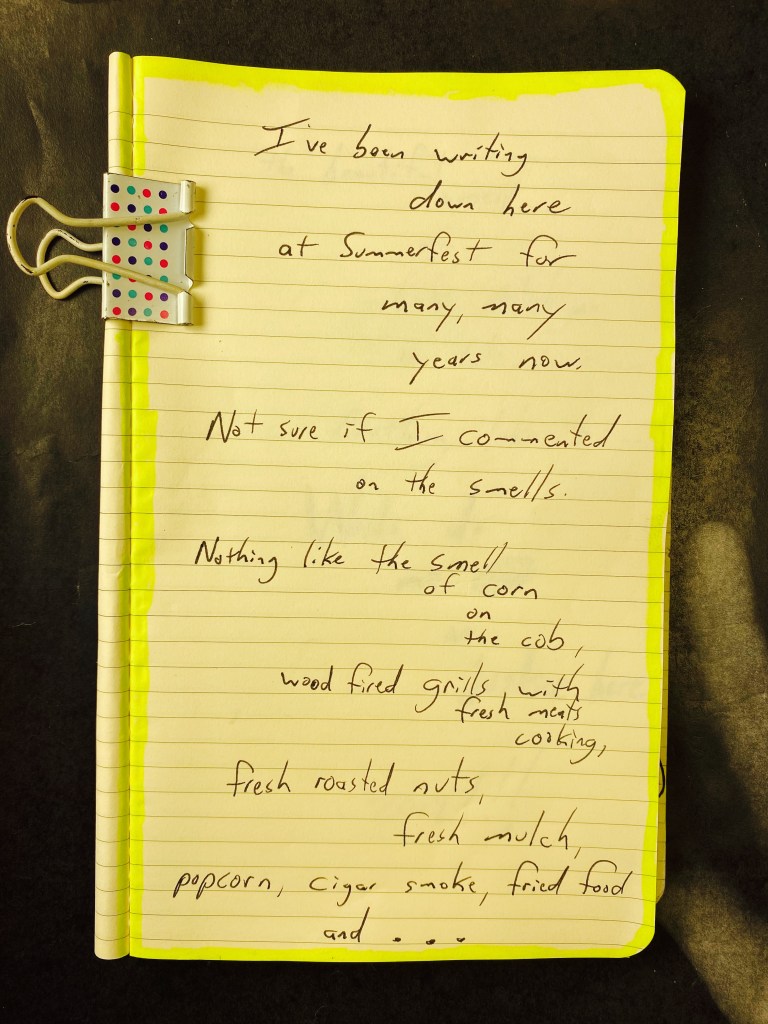 I've been writing
down here
at Summerfest for
many, many
years now.
Not sure if I commented
on the smells.
Nothing like the smell
of corn
on
the cob,
wood fired grills with
fresh meats
cooking,
fresh roasted nuts,
fresh mulch,
popcorn, cigar smoke, fried food
and . . .